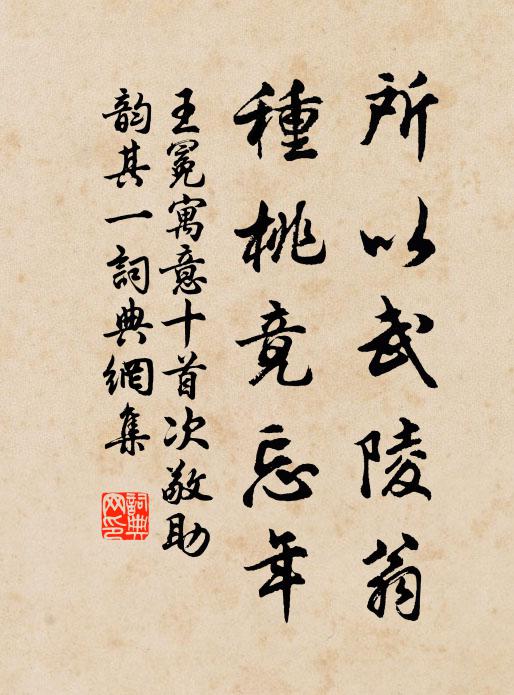 所以武陵翁
種桃竟忘年
王冕寓意十首次敬助
韵其一詞典網集
詞典網印